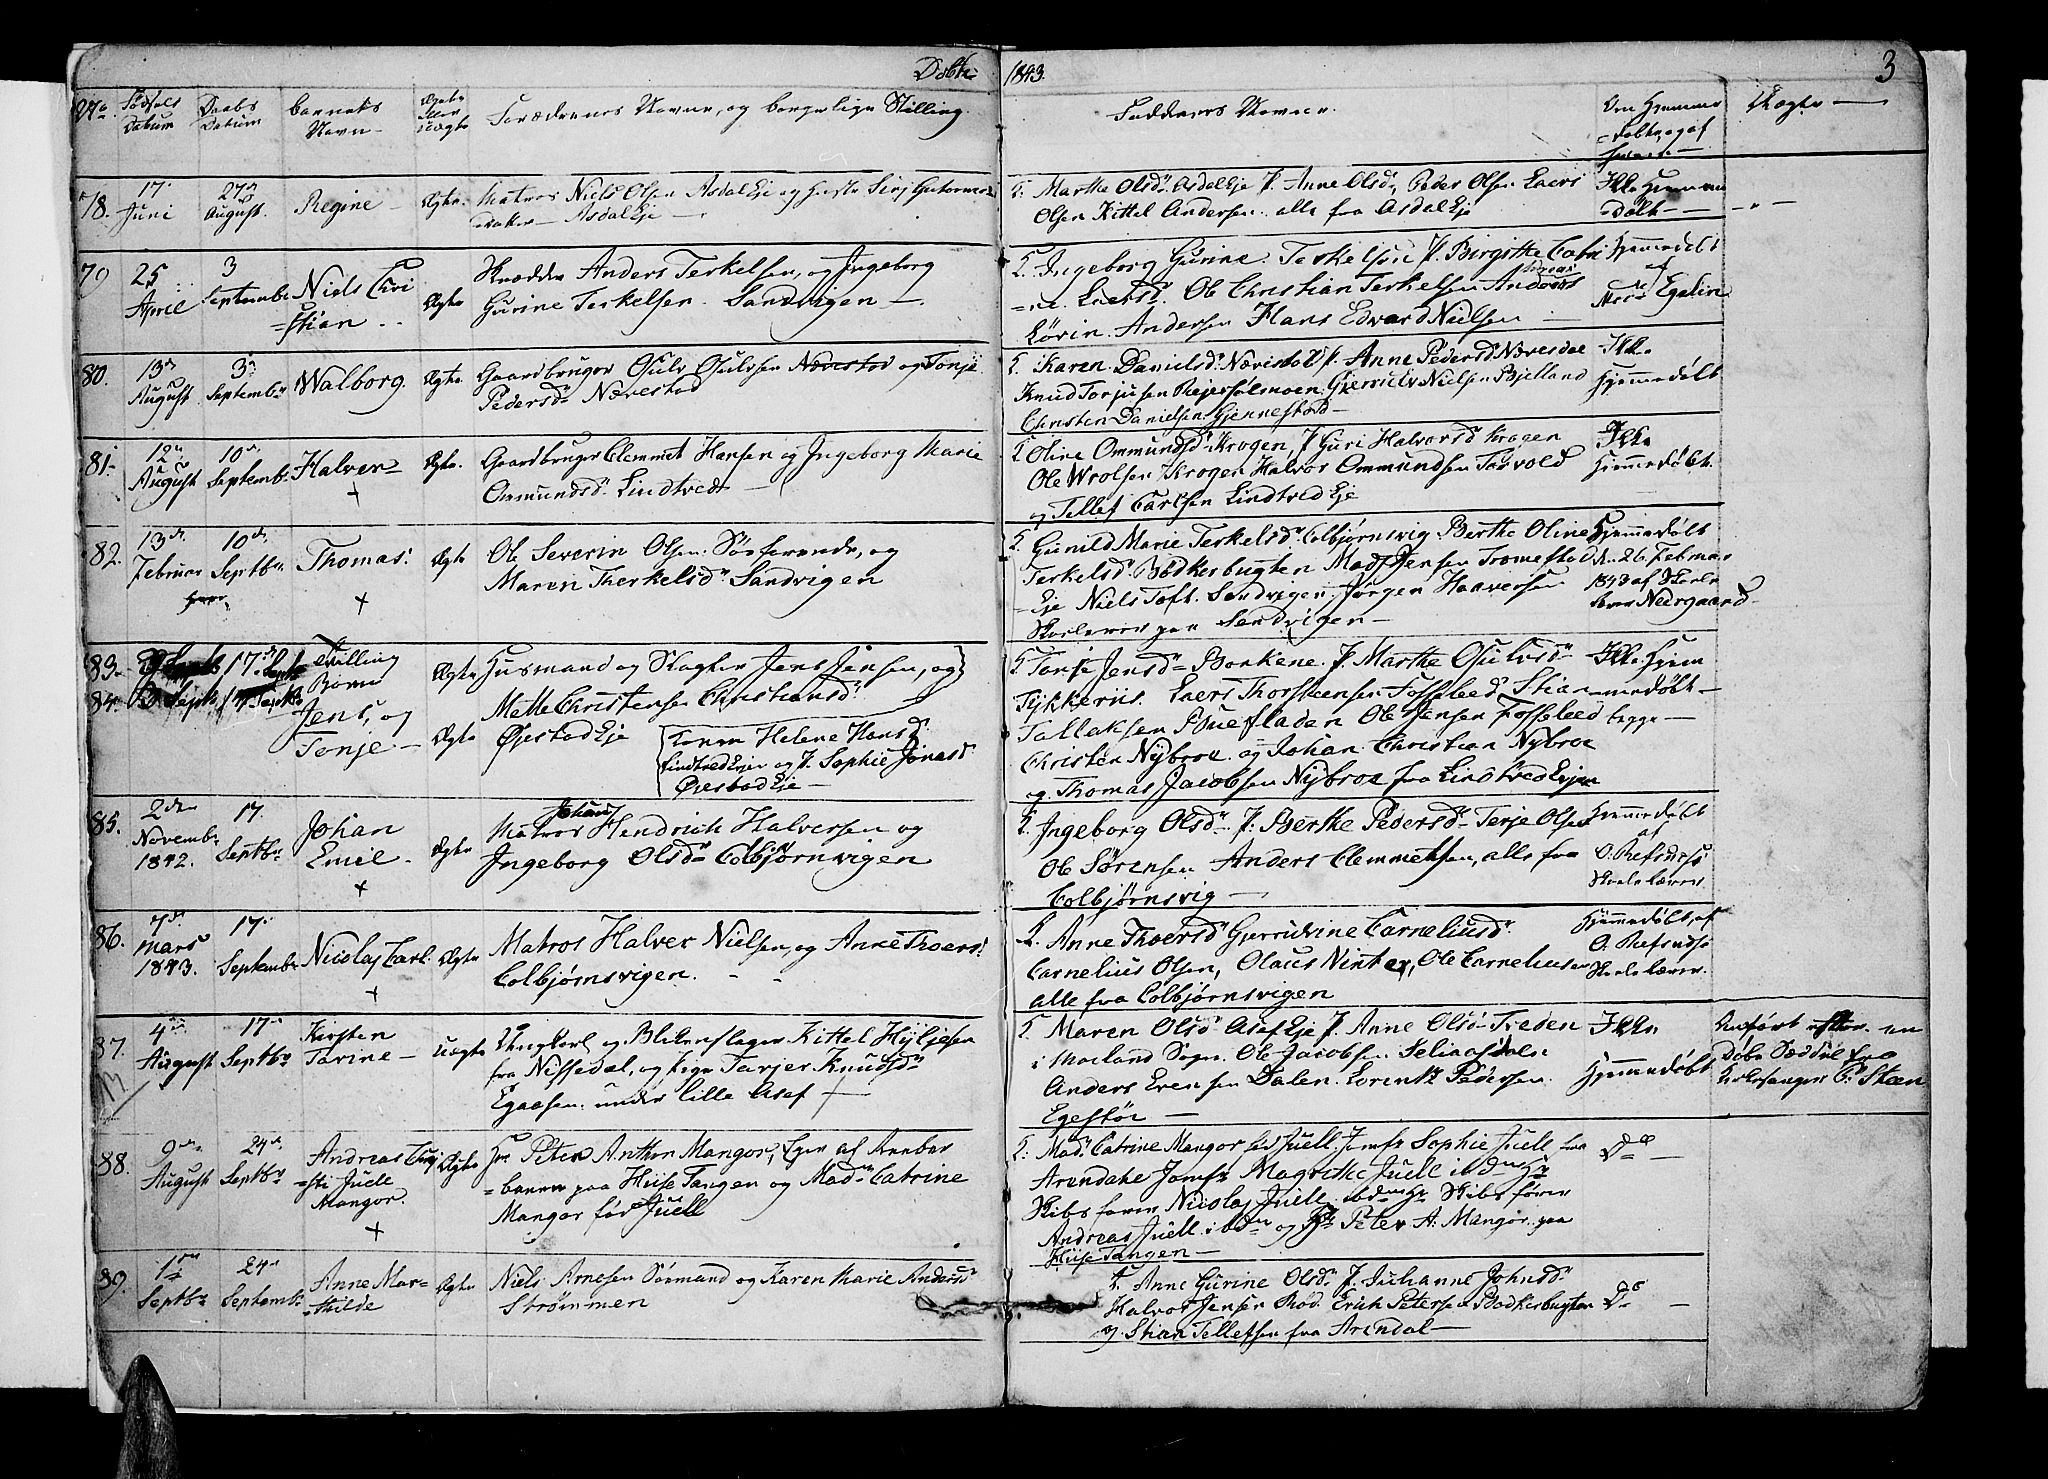 Døbte
1843.
3
No.
Fødsels Datum
Daabs Datum
Barnets Navn
Ægte Eller Uægte
Forældrenes Navne, og borgerlige Stilling
Faddernes Navne
Om Hjemme
Døbt, og af
78.
17 Juni
27 August.
Regine
Ægte.
Matros Niels Olsen Asdal Eje og Siri
Asdal Eje
F. Marthe Olsd. Asdal Eje J. Anne Olsd. Peder Olsen Laers
Olsen Kittel Andersen alle fra Asdal Eje
Ikke Hjemme
Døbt
79
25 April
3 Septembr
Niels Chri
=stian
Ægte
Skrædder Anders Terkelsen, og Ingeborg
Gurine Terkelsen. Sandvigen
F. Ingeborg Gurine Terkelsen J. Birgitte Catri
=ne Laersd. Ole Christian Terkelsen Anders
Lövin Andersen Hans Edvard Nielsen
Hjemmedøbt
af
Egelin
80.
13 August
3 Septembr
Walborg.
Ægte
Gaardbruger Gjulv Gjulvsen Nævestad og Tonje
Pedersd. Nævestad
F. Karen Danielsd. Nævestad J. Anne Pedersd. Nævesdal
Knud Torjusen Rejersølmoen Nielsen Bjelland
Christen Danielsen Gjennestad
Ikke
Hjemmedøbt
81.
12 August
10 Septembr
Halver
+
Ægte.
Gaardbruger Clemmet Hansen og Ingeborg Marie
Ommundsd. Lindtvedt
F. Oline Ommundsd. Krogen, J. Guri Halvorsd. Krogen
Ole Wrolsen Krogen Halvor Ommundsen Torvold
og Tellef Carlsen Lindtved Eje
Ikke
Hjemmedøbt.
82.
13 Februar
10 Septbr
Thomas
+
Ægte
Ole Severin Olsen. Søefarende, og
Maren Therkelsd. Sandvigen
F. Gunild Marie Terkelsd. Colbjørnsvig Berthe Oline
Terkelsd. Bødkerbugten Mads Jensen Tromestad
Eje Niels Toft. Sandvigen. Jørgen Haaversen
Skolelærer paa Sandvigen
Hjemmedøbt
d. 26 Februar
1843 af Skolelærer
Neergaard
83.
84.
17 Septb
Tvilling
Børn
Jens, og
Tonje
Ægte
Ægte
Husmand og Slagter Jens Jensen, og
Mette Christense Christiansd.
Øiestad Eje
Helene Hansd.
Lindtved Ejer og J. Sophie Jonasd.
Øiestad Eje
F. Tonje Jensd. Borkene. J. Marthe Gjulvsd.
Tykkeriis. Laers Thorsteensen Fosseleed Stian
Tallaksen Buesladen Ole Hansen Fosseleed
Christen Nybroe og Johan Christian Nybroe
og Thomas Jacobsen Nybroe fra Lindtved Ejen
Ikke Hjem
=medøbt
begge
85.
2den Novembr 1842.
17. Septbr
Johan
Emil
+
Ægte
Matros Johan Hendrich Halversen og
Ingeborg Olsd. Colbjørnvigen
F. Ingeborg Olsd. J. Berthe Pedersd. Terje Olsen
Ole Sørensen Anders Clemmetsen, alle fra
Colbjørnsvig
Hjemmedøbt
af
O. Refsnæs
Skolelærer
86.
7de Mars 1843.
17. Septembr
Nicolaj Carl.
+
Ægte
Matros Halver Nielsen, og Anne Thoersd.
Colbjørnsvigen.
F. Anne Thoersd. Gjerrudine Carneliusd.
Carnelius Olsen, Olaus Ninter, Ole Carneliusen
alle fra Colbjørnsvigen
Hjemmedøbt, af
O. Refsnæs
Skolelærer.
87.
4 August
17 Septbr
Kirsten
Tarine
Uægte
Ungkarl og Blikenslager Kittel Hyljesen
fra Nissedal, og Pige Tarjer Knudsd.
Egaasen under lille Asef
F. Maren Olsd. Asef Eje J. Anne Olsd. Treden
i Moeland Sogn. Ole Jacobsen Seliaasdalen
Anders Evensen Dalen. Lorentz Pedersen
Egestöe
Ikke
Hjemmedøbt
Anført efter en
Døbe Sæddel fra
Kirkesanger P. Steen
88.
9 August
24 Septbr
Andreas
=sti Juell
Mangor.
+
Ægte
Hr. Peter Anthon Mangor, Ejer af
paa Hiise Tangen og Mad. Catrine
Mangor før Juell
F. Mad. Catrine Mangor fød Juell. Jomfr Sophie Juell fra
Arendahl Jomfr Magrethe Juell ibdm Hr
Skibsfører Nicolaj Juell. ibdm Hr Skibsfører
Andreas Juell. ibdm og Hr Peter A. Mangor paa
Hiise Tangen
Do
89.
1 Septbr
24 Septembr
Anne Mar=
=thilde
Ægte
Niels Arnesen Sømand og Karen Marie Andersd.
Strømmen
F. Anne Gurine Olsd. J. Juhanne Johnsd.
Halvor Jensen Rød. Erich Petersen Bødkerbugten
og Stian Tellefsen fra Arendal
Do